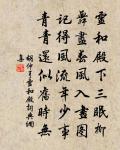 靈和殿下三眠柳
舞盡春風入畫圖
記得風流年少事
青青還似舊時無
胡仲弓靈和殿